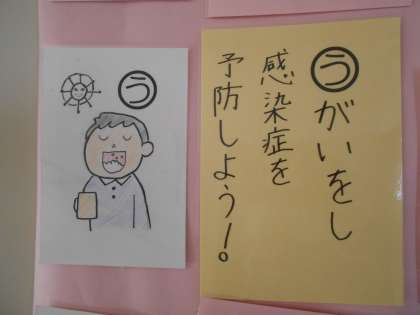 う
うがいをし
感染症を
予防しよう！